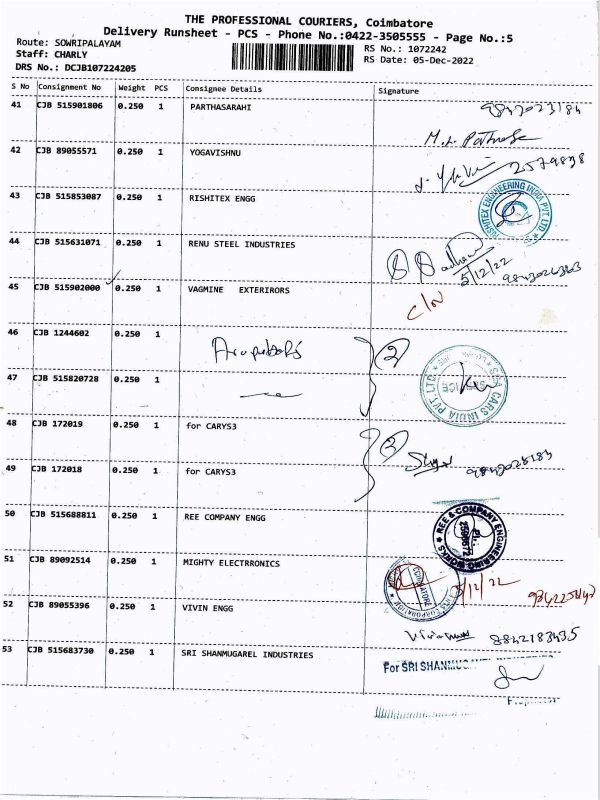 THE PROFESSIONAL COURIERS, Coimbatore
Delivery Runsheet - PCS - Phone No.:0422-3505555 - Page No.:5
Route: SOWRIPALAYAM
RS No.: 1072242
Staff: CHARLY
RS Date: 05-Dec-2022
DRS No.: DCJB107224205
S No Consignment No Weight PCS Consignee Details Signature
41 CJB 515901806 0.250 1 PARTHASARAHI
42 CJB 89055571 0.250 1 YOGAVISHNU 2579838
43 CJB 515853087 0.250 1 RISHITEX ENGG
RISHITEX ENGINEERING INDIA PVT. LTD.
44 CJB 515631071 0.250 1 RENU STEEL INDUSTRIES
5/12/22
45 CJB 515902000 0.250 1 VAGMINE EXTERIRORS C/N
46 CJB 1244602 0.250 1 2
47 CJB 515820728 0.250 1
CARS INDIA PVT. LTD.
48 CJB 172019 0.250 1 for CARYS3 2
49 CJB 172018 0.250 1 for CARYS3
50 CJB 515688811 0.250 1 REE COMPANY ENGG
REE & COMPANY ENGINEERING WORKS
51 CJB 89092514 0.250 1 MIGHTY ELECTRRONICS
COIMBATORE
5/12/22
52 CJB 89055396 0.250 1 VIVIN ENGG
53 CJB 515683730 0.250 1 SRI SHANMUGAREL INDUSTRIES
For SRI